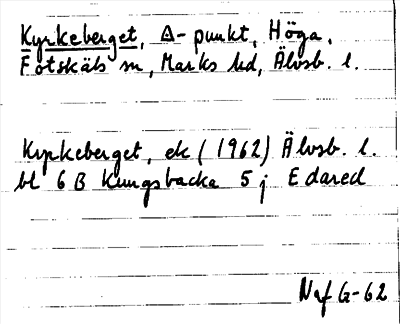 Kyrkeberget, Δ-punkt, Höga,
Fotskäls sn, Marks hd, Älvsb. l.
Kyrkeberget, ek (1962) Älvsb. l.
bl 6 B Kungsbacka 5 j Edared
Naf G-62